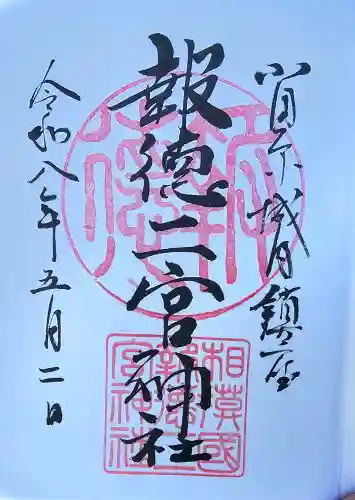 小田原城内鎮座
報徳二宮神社
令和八年五月二日
相模國
報徳二
宮神社